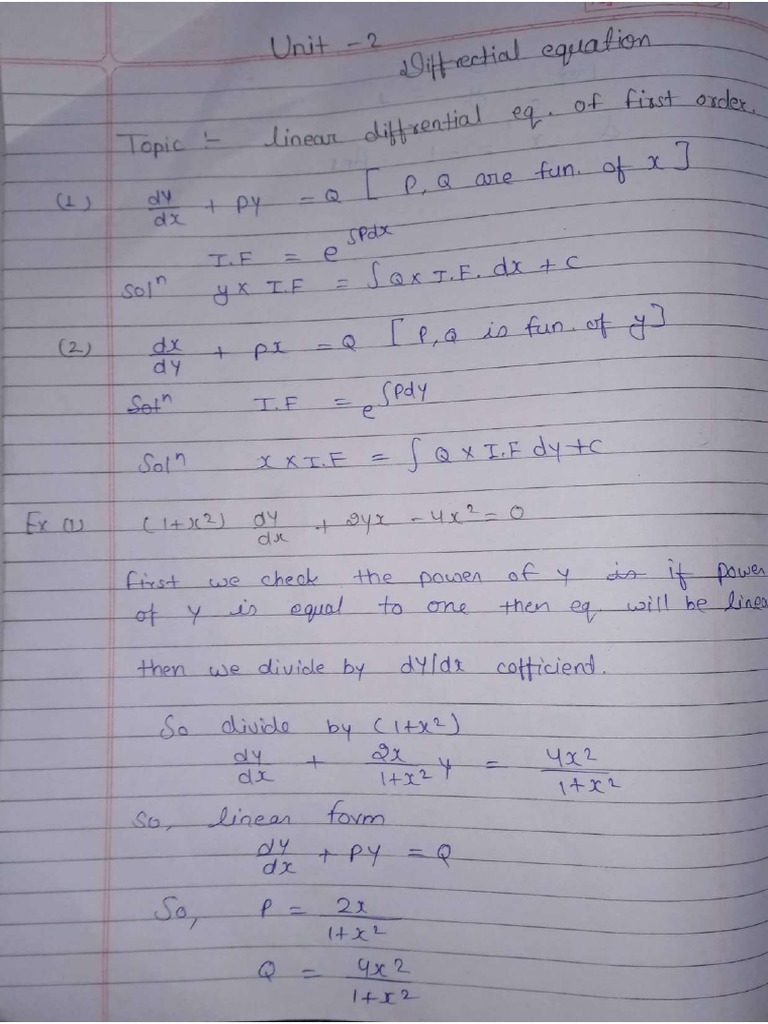 Unit - 2
Diffrectial equation
Topic :- linear diffrential eq. of first order.
(1) dy/dx + Py = Q [ P, Q are fun. of x ]
I.F = e^∫Pdx
Solⁿ y x I.F = ∫Q x I.F. dx + C
(2) dx/dy + Px = Q [ P, Q is fun. of y ]
Solⁿ I.F = e^∫Pdy
Solⁿ x x I.F = ∫ Q x I.F dy + C
Ex (1) (1+x²) dy/dx + 2yx - 4x² = 0
first we check the power of y is if power
of y is equal to one then eq. will be linea
then we divide by dy/dx cofficiend.
So divide by (1+x²)
dy/dx + 2x/1+x² y = 4x²/1+x²
So, linear form
dy/dx + Py = Q
So, P = 2x/1+x²
Q = 4x²/1+x²